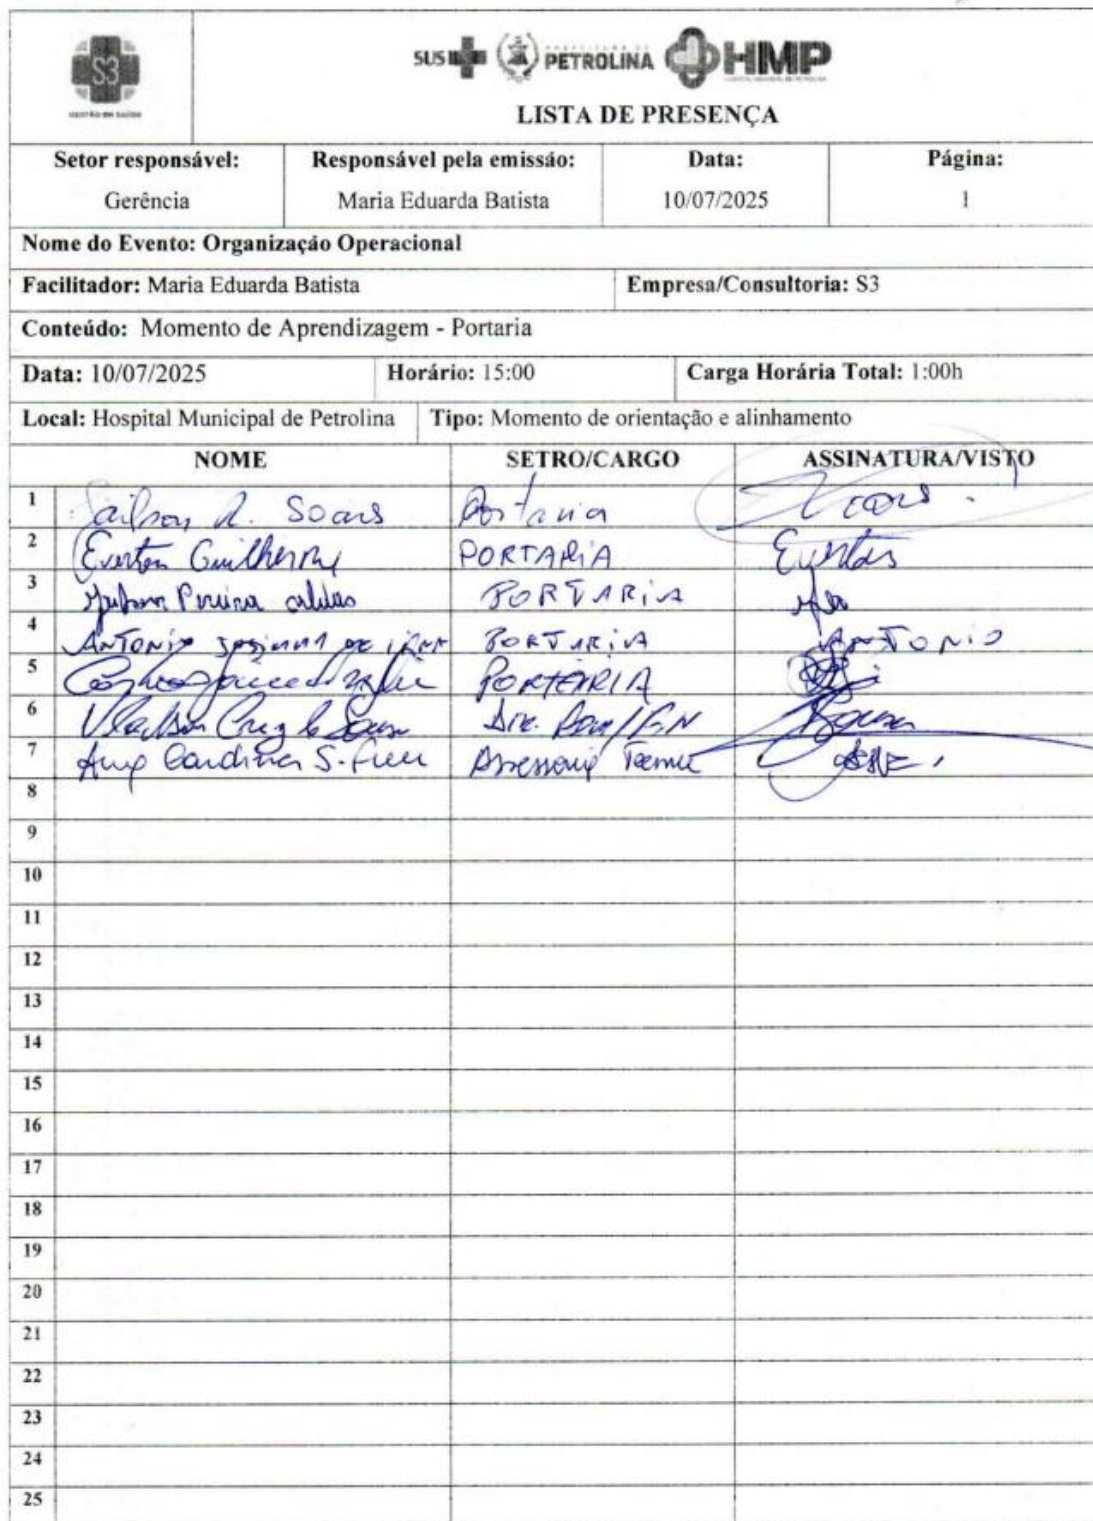 S3
GESTÃO EM SAÚDE
SUS PREFEITURA DE PETROLINA HMP
HOSPITAL MUNICIPAL DE PETROLINA
LISTA DE PRESENÇA
Setor responsável: Responsável pela emissão: Data: Página:
Gerência Maria Eduarda Batista 10/07/2025 1
Nome do Evento: Organização Operacional
Facilitador: Maria Eduarda Batista Empresa/Consultoria: S3
Conteúdo: Momento de Aprendizagem - Portaria
Data: 10/07/2025 Horário: 15:00 Carga Horária Total: 1:00h
Local: Hospital Municipal de Petrolina Tipo: Momento de orientação e alinhamento
NOME SETRO/CARGO ASSINATURA/VISTO
1 R. Soares Portaria Soares
2 Everton Guilherme PORTARIA Everton
3 Pereira PORTARIA
4 ANTONIO PORTARIA ANTONIO
5 PORTARIA
6 Cruz de Sousa Dir. Sousa
7 Ana Carolina S. Assessoria
8
9
10
11
12
13
14
15
16
17
18
19
20
21
22
23
24
25